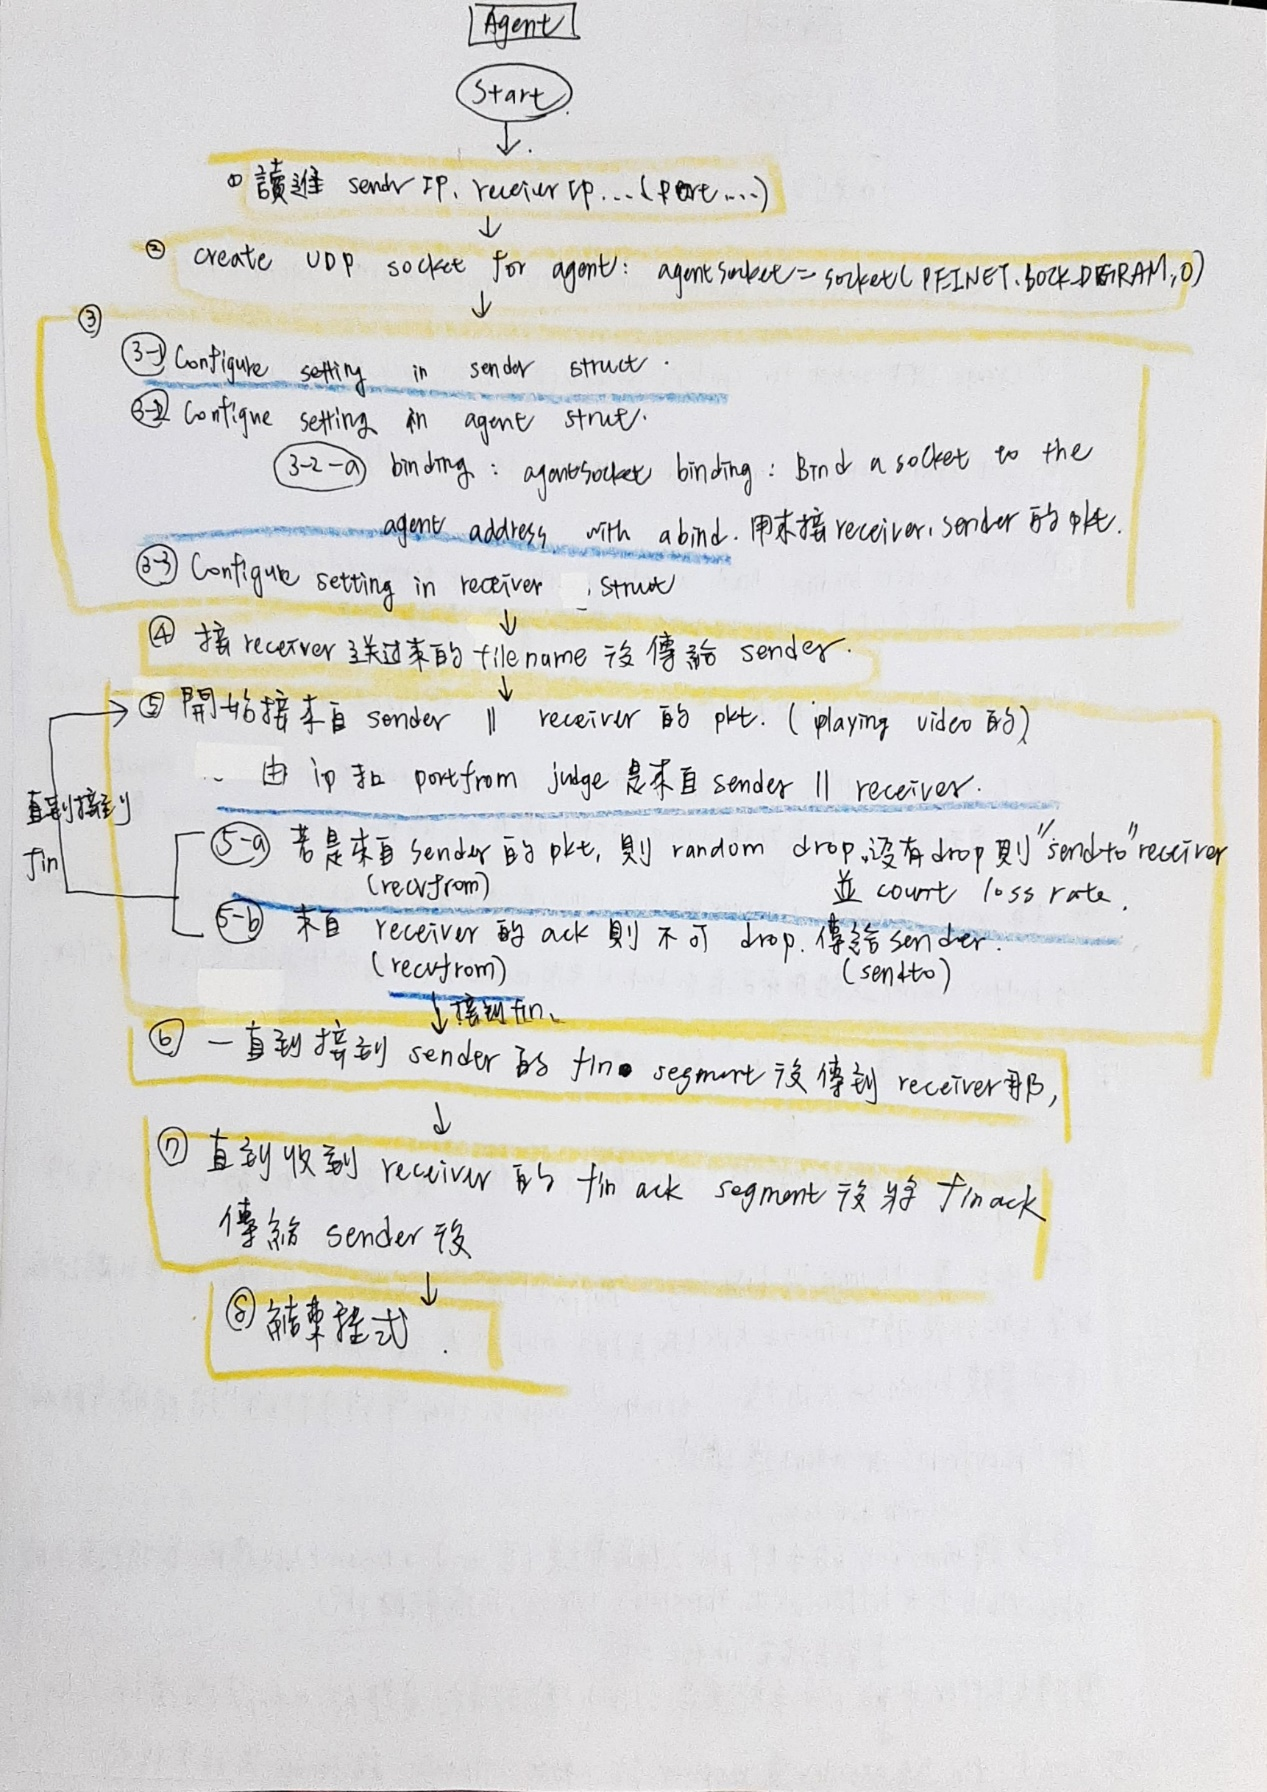 Agent
Start
① 讀進 sender IP, receiver IP...(port....)
② create UDP socket for agent: agentsocket = socket(PF_INET, SOCK_DGRAM, 0)
③
3-1 Configure setting in sender struct.
3-2 Configure setting in agent struct.
3-2-a binding: agentsocket binding: Bind a socket to the
agent address with a bind. 用來接 receiver, sender 的 pkt.
3-3 Configure setting in receiver struct
④ 接 receiver 送过來的 filename 後傳給 sender.
⑤ 開始接來自 sender || receiver 的 pkt. (playing video 的)
由 ip 和 portfrom judge 是來自 sender || receiver.
直到接到
fin
5-a 若是來自 sender 的 pkt, 則 random drop, 沒有 drop 則 "sendto" receiver
(recvfrom) 並 count loss rate.
5-b 來自 receiver 的 ack 則不可 drop. 傳給 sender.
(recvfrom) (sendto)
接到 fin.
⑥ 一直到接到 sender 的 fin segment 後傳到 receiver 那,
⑦ 直到收到 receiver 的 fin ack segment 後將 finack
傳給 sender 後
⑧ 結束程式.